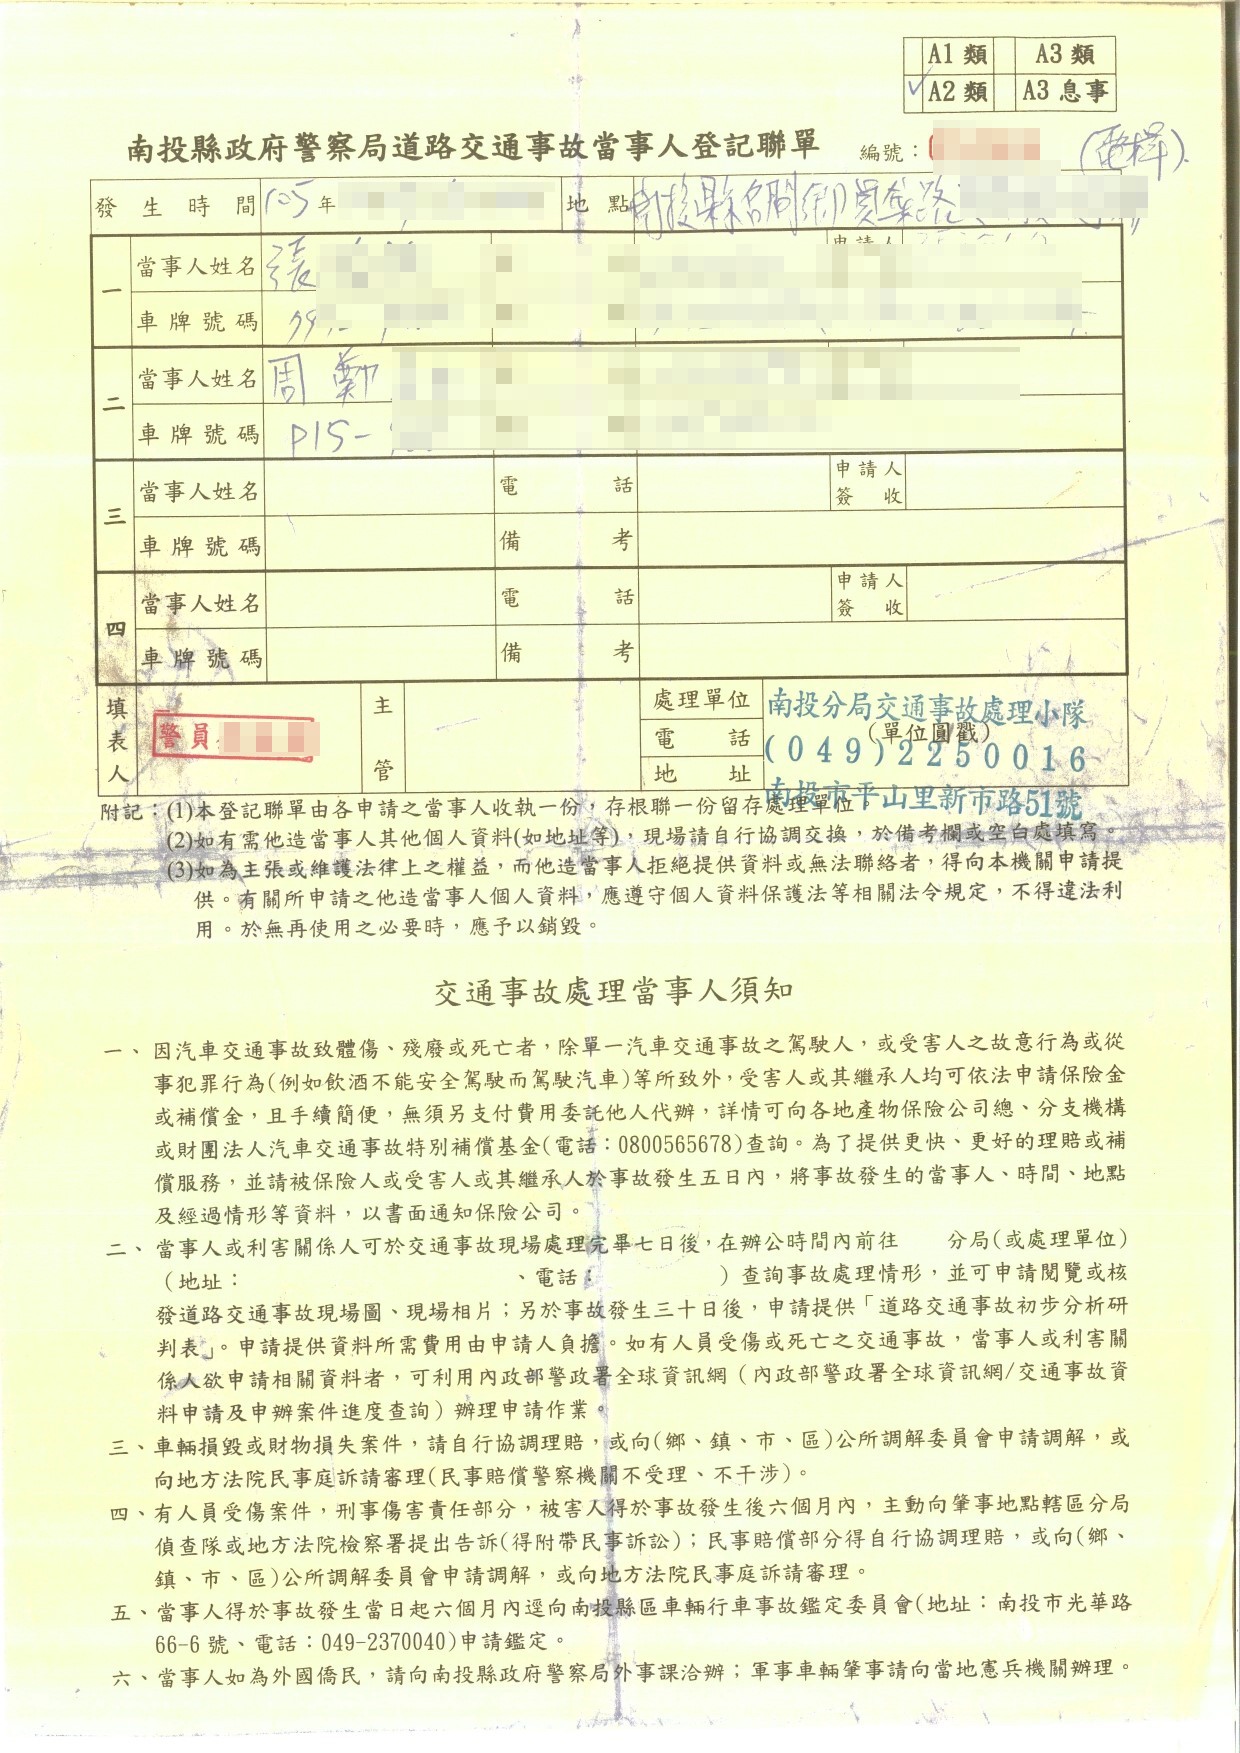 A1 類 A3 類
A2 類 A3 息事
南投縣政府警察局道路交通事故當事人登記聯單 編號：
發生時間 105 年 地點 南投縣名間鄉員集路
一 當事人姓名 張 申請人
車牌號碼
二 當事人姓名 周 鄭
車牌號碼 P15-
三 當事人姓名 電話 申請人簽收
車牌號碼 備考
四 當事人姓名 電話 申請人簽收
車牌號碼 備考
填表人 警員 主管 處理單位 南投分局交通事故處理小隊
(單位圓戳)
電話 (049)2250016
地址 南投市平山里新市路51號
附記：(1)本登記聯單由各申請之當事人收執一份，存根聯一份留存處理單位。
(2)如有需他造當事人其他個人資料(如地址等)，現場請自行協調交換，於備考欄或空白處填寫。
(3)如為主張或維護法律上之權益，而他造當事人拒絕提供資料或無法聯絡者，得向本機關申請提
供。有關所申請之他造當事人個人資料，應遵守個人資料保護法等相關法令規定，不得違法利
用。於無再使用之必要時，應予以銷毀。
交通事故處理當事人須知
一、因汽車交通事故致體傷、殘廢或死亡者，除單一汽車交通事故之駕駛人，或受害人之故意行為或從
事犯罪行為(例如飲酒不能安全駕駛而駕駛汽車)等所致外，受害人或其繼承人均可依法申請保險金
或補償金，且手續簡便，無須另支付費用委託他人代辦，詳情可向各地產物保險公司總、分支機構
或財團法人汽車交通事故特別補償基金(電話：0800565678)查詢。為了提供更快、更好的理賠或補
償服務，並請被保險人或受害人或其繼承人於事故發生五日內，將事故發生的當事人、時間、地點
及經過情形等資料，以書面通知保險公司。
二、當事人或利害關係人可於交通事故現場處理完畢七日後，在辦公時間內前往 分局(或處理單位)
（地址： 、電話： ）查詢事故處理情形，並可申請閱覽或核
發道路交通事故現場圖、現場相片；另於事故發生三十日後，申請提供「道路交通事故初步分析研
判表」。申請提供資料所需費用由申請人負擔。如有人員受傷或死亡之交通事故，當事人或利害關
係人欲申請相關資料者，可利用內政部警政署全球資訊網（內政部警政署全球資訊網/交通事故資
料申請及申辦案件進度查詢）辦理申請作業。
三、車輛損毀或財物損失案件，請自行協調理賠，或向(鄉、鎮、市、區)公所調解委員會申請調解，或
向地方法院民事庭訴請審理(民事賠償警察機關不受理、不干涉)。
四、有人員受傷案件，刑事傷害責任部分，被害人得於事故發生後六個月內，主動向肇事地點轄區分局
偵查隊或地方法院檢察署提出告訴(得附帶民事訴訟)；民事賠償部分得自行協調理賠，或向(鄉、
鎮、市、區)公所調解委員會申請調解，或向地方法院民事庭訴請審理。
五、當事人得於事故發生當日起六個月內逕向南投縣區車輛行車事故鑑定委員會(地址：南投市光華路
66-6 號、電話：049-2370040)申請鑑定。
六、當事人如為外國僑民，請向南投縣政府警察局外事課洽辦；軍事車輛肇事請向當地憲兵機關辦理。